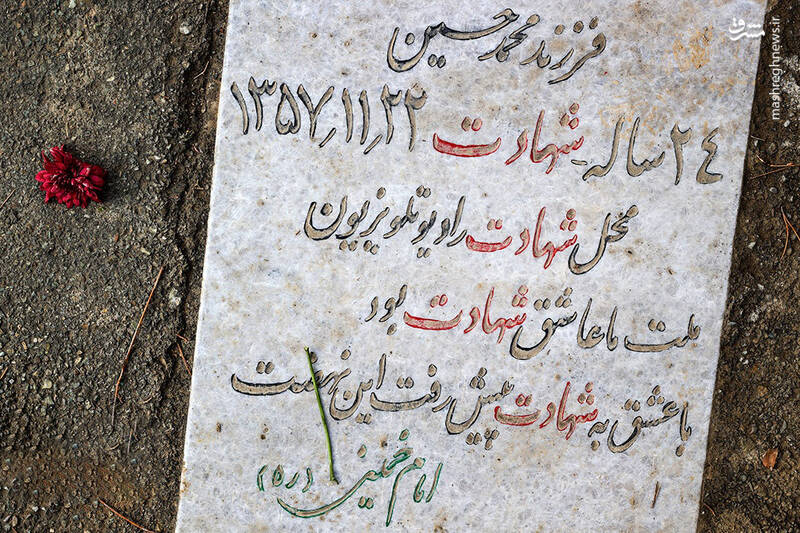 فرزند محمد حسین
۲۴ ساله شهادت ۱۳۵۷٫۱۱٫۲۲
محل شهادت رادیو تلویزیون
ملت ما عاشق شهادت بود
با عشق به شهادت پیش رفت این نهضت
امام خمینی (ره)
مشرق
mashreghnews.ir